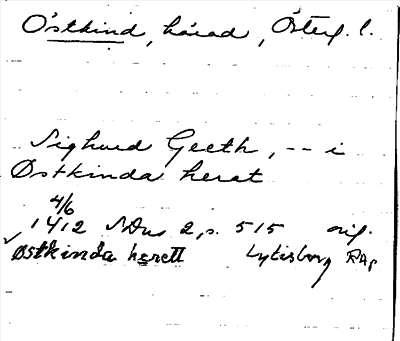 Östkind, härad, Österg. l.
Sighurd Geeth, -- i
Østkinda herat
4/6
1412 SDns 2, s. 515 orig.
✓ Østkinda herett Lytisborg RAp